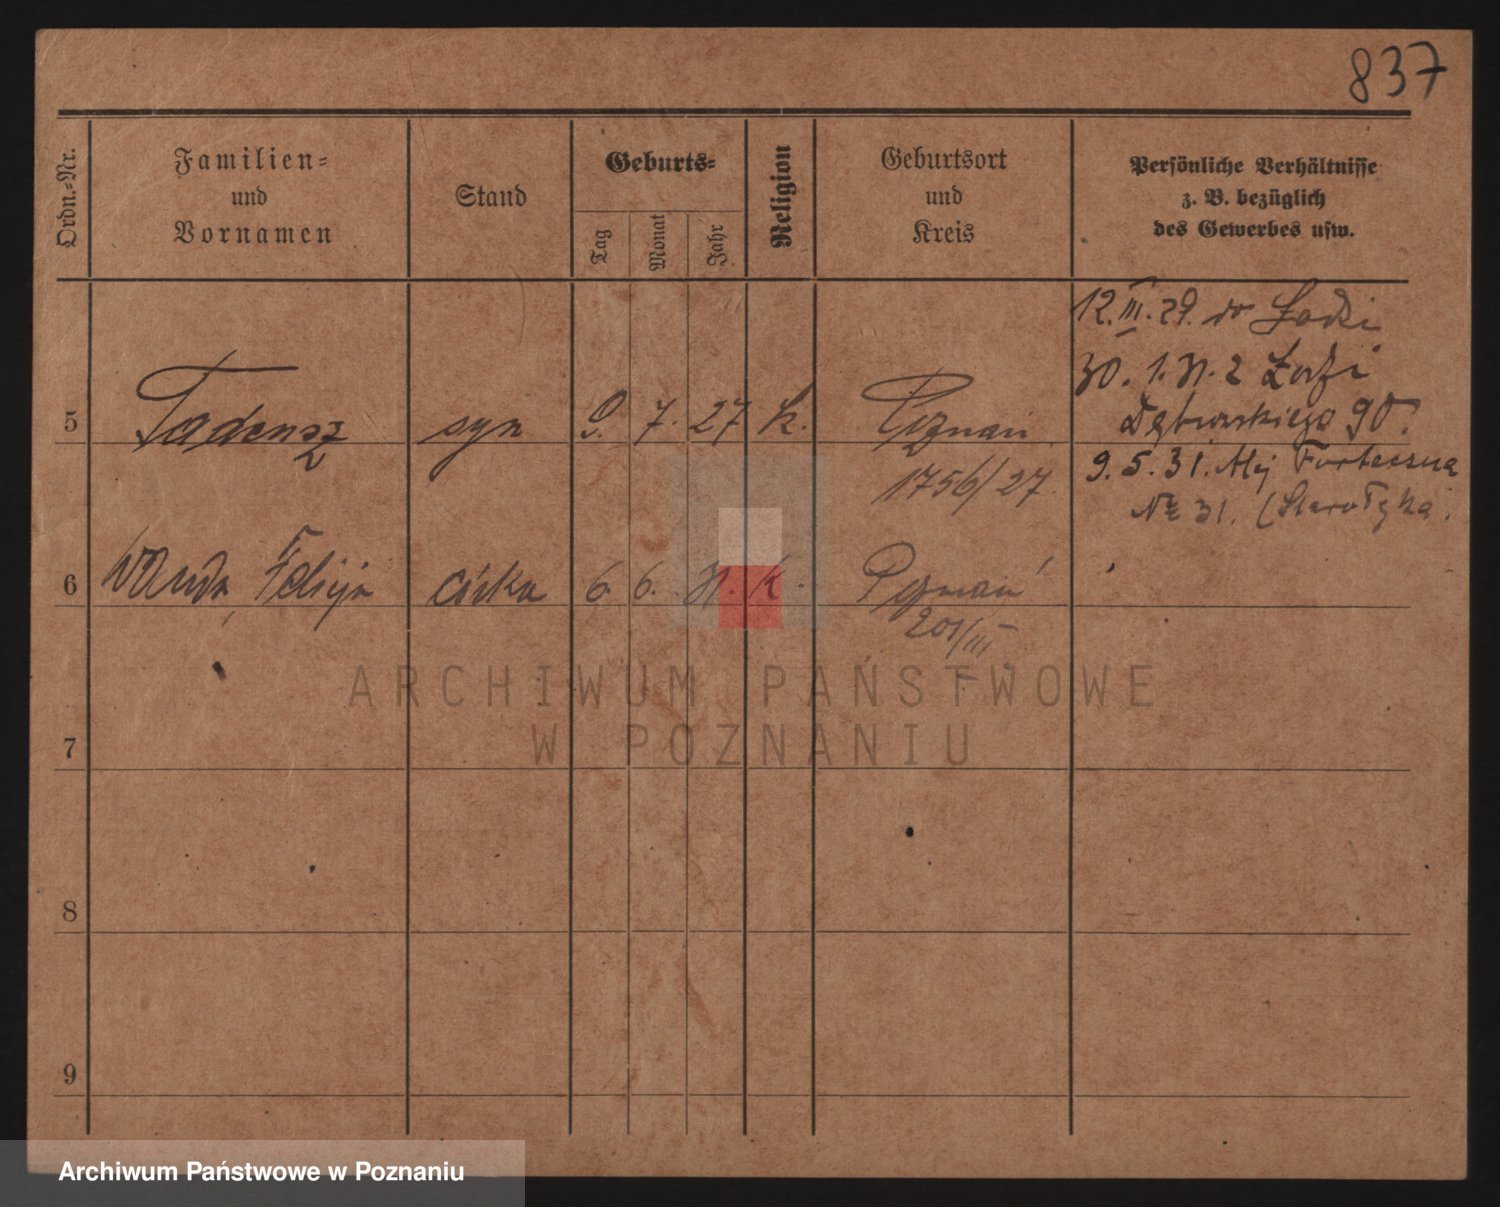 837
Ordn.-Nr.
Familien-
und
Vornamen
Stand
Geburts-
Tag
Monat
Jahr
Religion
Geburtsort
und
Kreis
Persönliche Verhältnisse
z. B. bezüglich
des Gewerbes usw.
12.III.29. do Łodzi
30. 1. 31. z Łodzi
Dąbrowskiego 90.
5 Tadeusz syn 9. 7. 27 k. Poznań
9. 5. 31. Alej Forteczna
1756/27.
№ 31. (Starołęka.
6 Wanda, Felicja córka 6. 6. 31. k. Poznań
201/III
ARCHIWUM PAŃSTWOWE
W POZNANIU
7
8
9
Archiwum Państwowe w Poznaniu